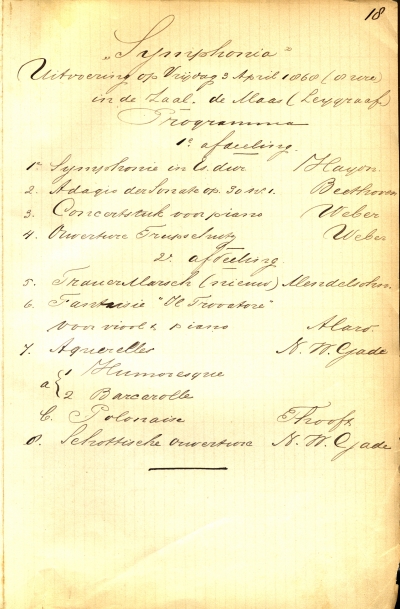 18
„Symphonia"
Uitvoering op Vrijdag 3 April 1868 (8 ure)
in de Zaal de Maas (Leygraaf)
Programma
1e afdeeling.
1e Symphonie in Es dur Haydn.
2. Adagio der Sonate op. 30 No 1. Beethoven
3. Concertstuk voor piano Weber
4. Ouverture Freyschutz Weber
2e. afdeeling.
5. TrauerMarsch (nieuw) Mendelsohn.
6. Fantaisie "Il Trovatore"
voor viool & piano Alard.
7. Aquerelles N. W. Gade
a { 1 Humoresque
2 Barcarolle
b. Polonaise Thooft
8. Schottische ouverture N. W. Gade